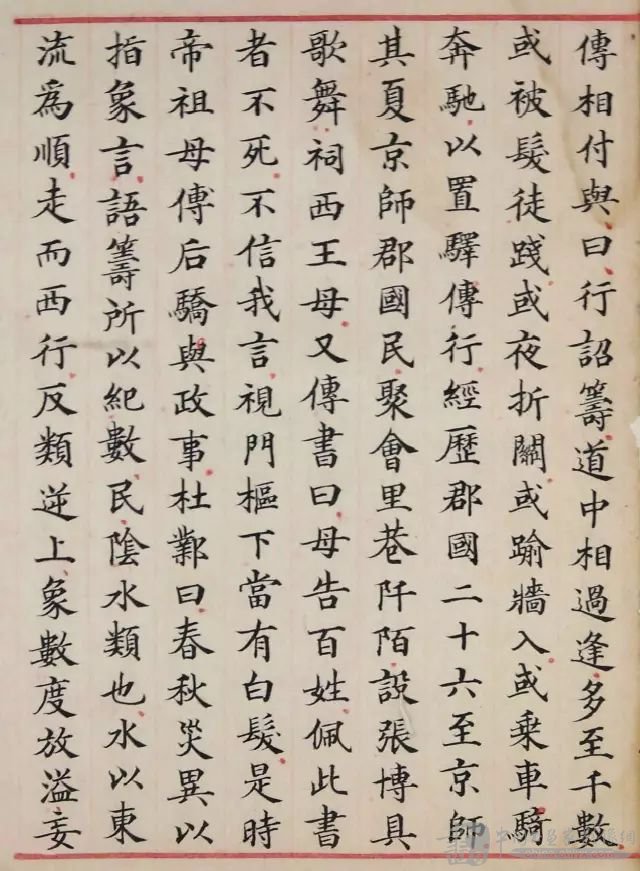 傳相付與曰行詔籌道中相過逢多至千數
或被髮徒踐或夜折關或踰牆入或乗車騎
奔馳以置驛傳行經歷郡國二十六至京師
其夏京師郡國民聚會里巷阡陌設張博具
歌舞祠西王母又傳書曰母告百姓佩此書
者不死不信我言視門樞下當有白髮是時
帝祖母傅后驕與政事杜鄴曰春秋災異以
指象言語籌所以紀數民陰水類也水以東
流爲順走而西行反類逆上象數度放溢妄